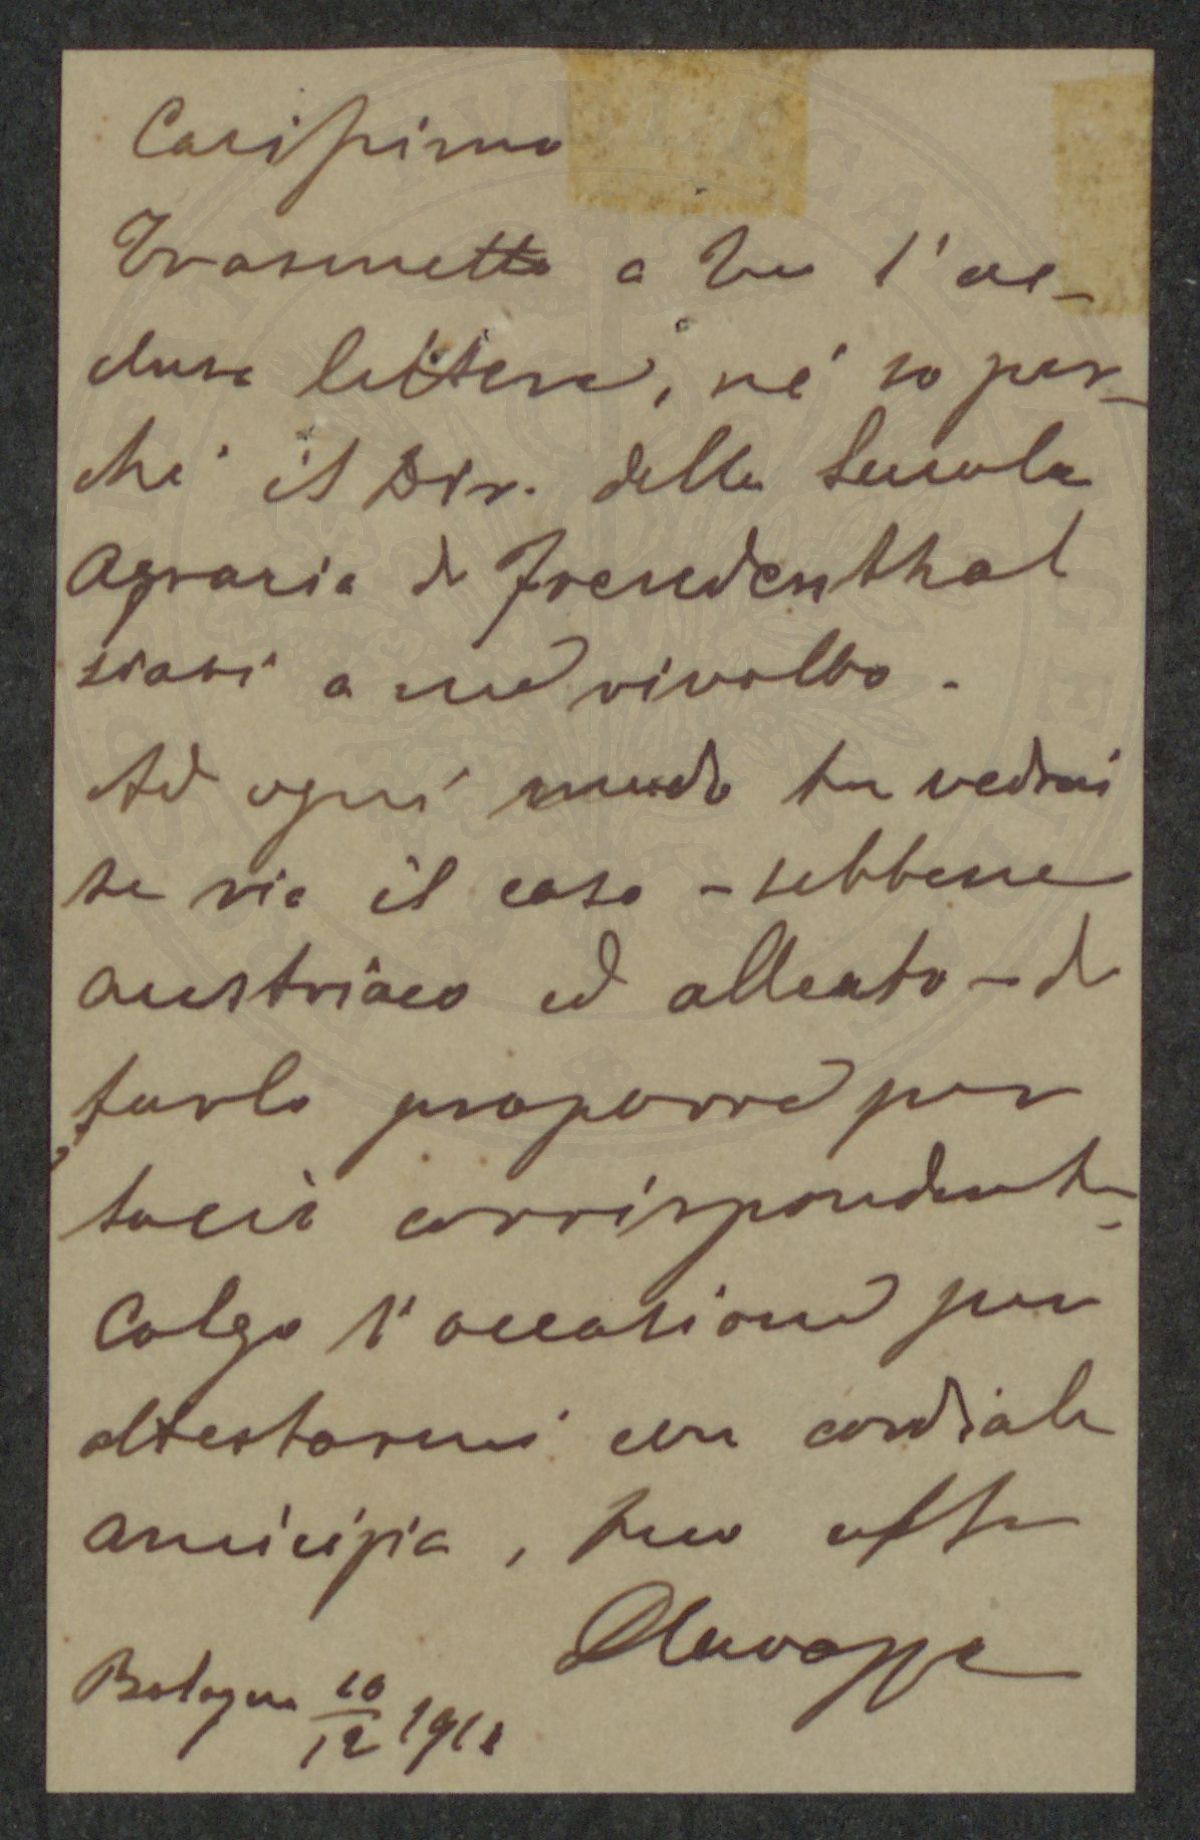 Carissimo
Trasmetto a Te l'ac-
clusa lettera, né so per-
ché il Dir. della Scuola
Agraria di Freudenthal
siasi a me rivolto.
Ad ogni modo tu vedrai
se sia il caso - sebbene
austriaco ed alleato - di
farlo proporre per
socio corrispondente.
Colgo l'occasione per
attestarmi con cordiale
amicizia, tuo aff
Bologna 10/12 1911